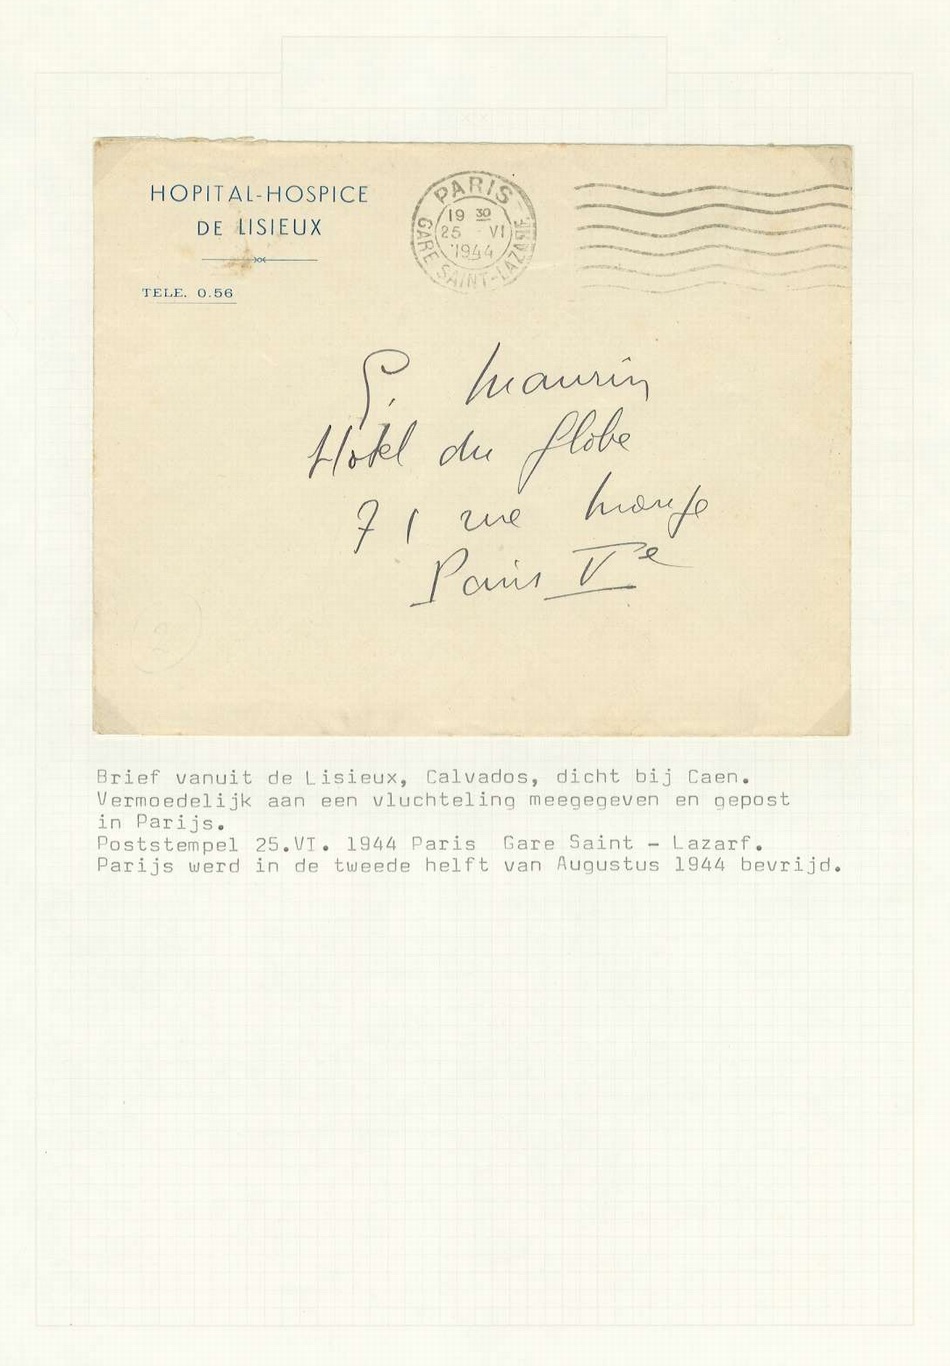 HOPITAL-HOSPICE
DE LISIEUX
TELE. 0.56
PARIS
19 30
25 VI
1944
GARE SAINT-LAZARE
G. Maurin
Hotel du Globe
71 rue Monge
Paris Ve
2
Brief vanuit de Lisieux, Calvados, dicht bij Caen.
Vermoedelijk aan een vluchteling meegegeven en gepost
in Parijs.
Poststempel 25.VI. 1944 Paris  Gare Saint - Lazarf.
Parijs werd in de tweede helft van Augustus 1944 bevrijd.